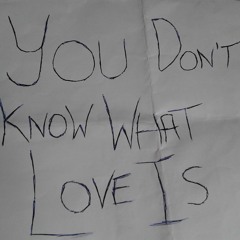 YOU DON'T
KNOW WHAT
LOVE IS